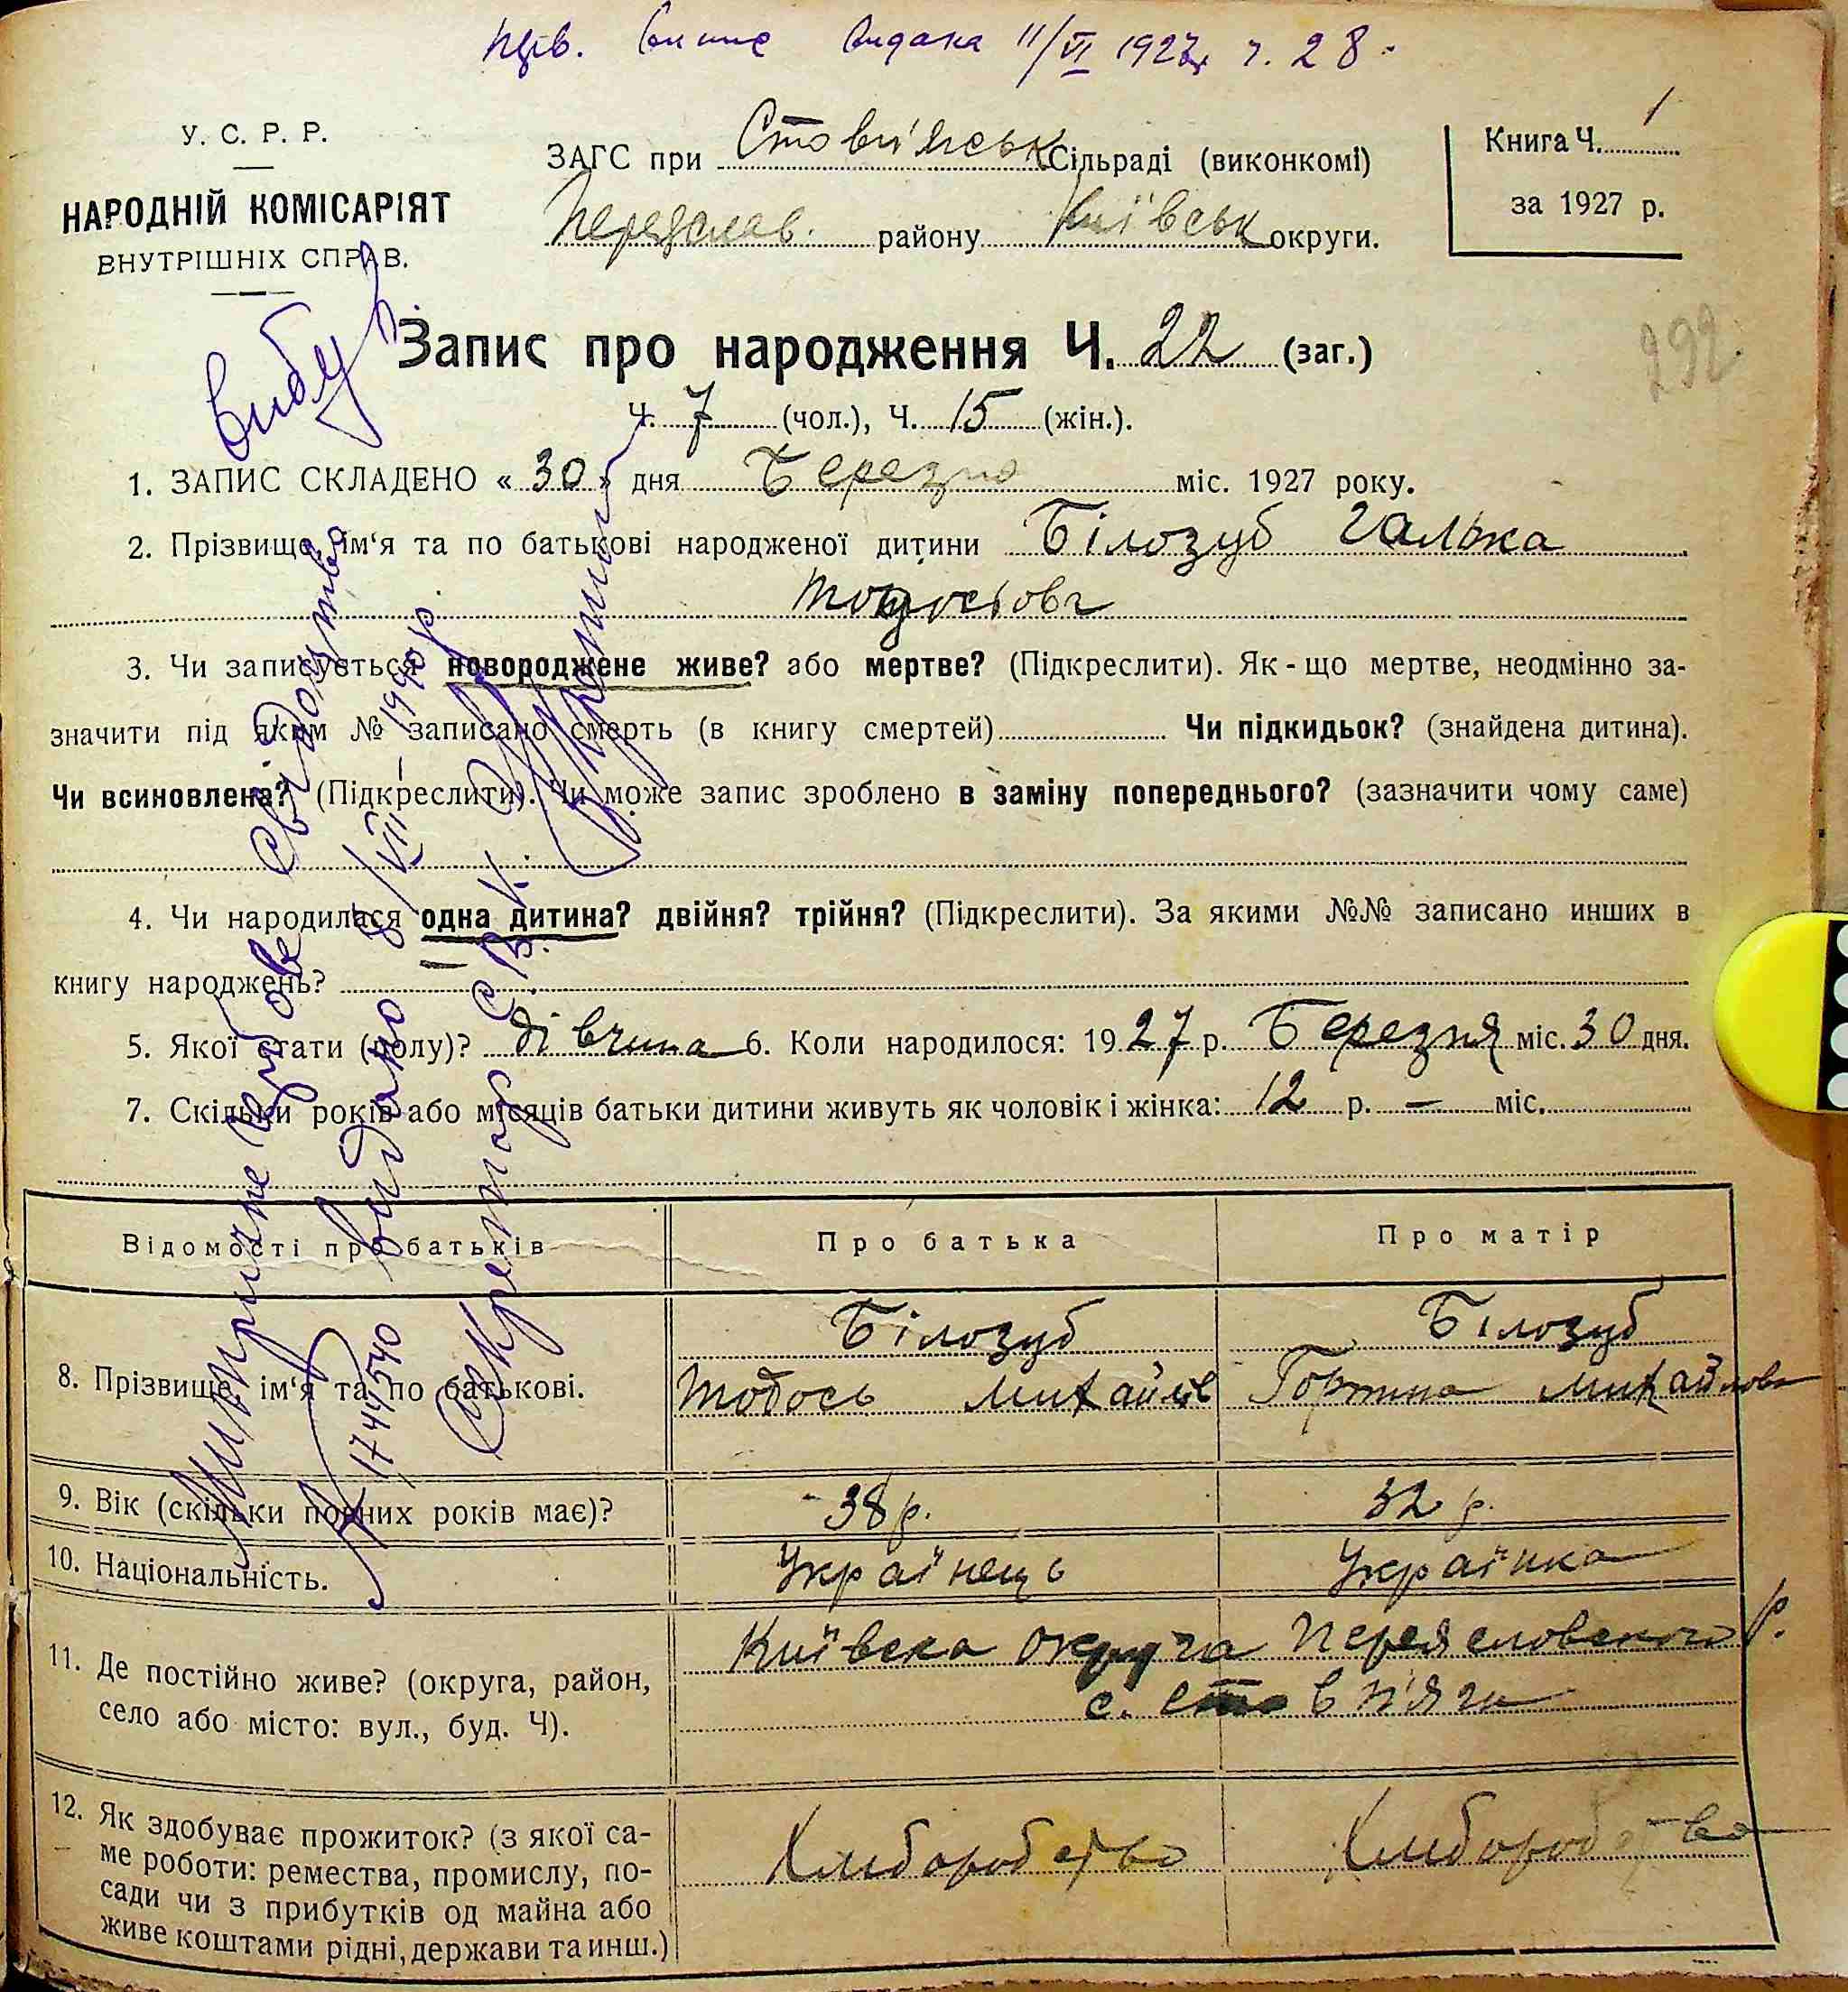 видана 11/VI 1927р ч. 28
У. С. Р. Р.
НАРОДНІЙ КОМІСАРІЯТ
ВНУТРІШНІХ СПРАВ.
ЗАГС при Стовп'янськ Сільраді (виконкомі)
Переяслав. району Київськ округи.
Книга Ч. 1
за 1927 р.
292
вибув
Запис про народження Ч. 22 (заг.)
Ч. 7 (чол.), Ч. 15 (жін.).
1. ЗАПИС СКЛАДЕНО « 30 » дня Березня міс. 1927 року.
2. Прізвище, ім'я та по батькові народженої дитини Білозуб Галька
Тодосіовг
3. Чи записується новороджене живе? або мертве? (Підкреслити). Як-що мертве, неодмінно за-
значити під яким № записано смерть (в книгу смертей) Чи підкидьок? (знайдена дитина).
Чи всиновлена? (Підкреслити). Чи може запис зроблено в заміну попереднього? (зазначити чому саме)
4. Чи народилася одна дитина? двійня? трійня? (Підкреслити). За якими №№ записано инших в
книгу народжень?
5. Якої стати (полу)? дівчина 6. Коли народилося: 1927 р. Березня міс. 30 дня.
7. Скільки років або місяців батьки дитини живуть як чоловік і жінка: 12 р. — міс.
Відомості про батьків Про батька Про матір
8. Прізвище, ім'я та по батькові. Білозуб Білозуб
Тодось Михайлів Горпина Михайлова
9. Вік (скільки повних років має)? 38 р. 32 р.
10. Національність. Українець Українка
11. Де постійно живе? (округа, район,
село або місто: вул., буд. Ч). Київска округа Переяславского р.
с. Стовп'яги
12. Як здобуває прожиток? (з якої са-
ме роботи: ремества, промислу, по-
сади чи з прибутків од майна або
живе коштами рідні, держави та инш.) Хліборобство Хліборобство
свідоцтво
видано 8/VII 1940р
1744540
Секретар С.В.К.